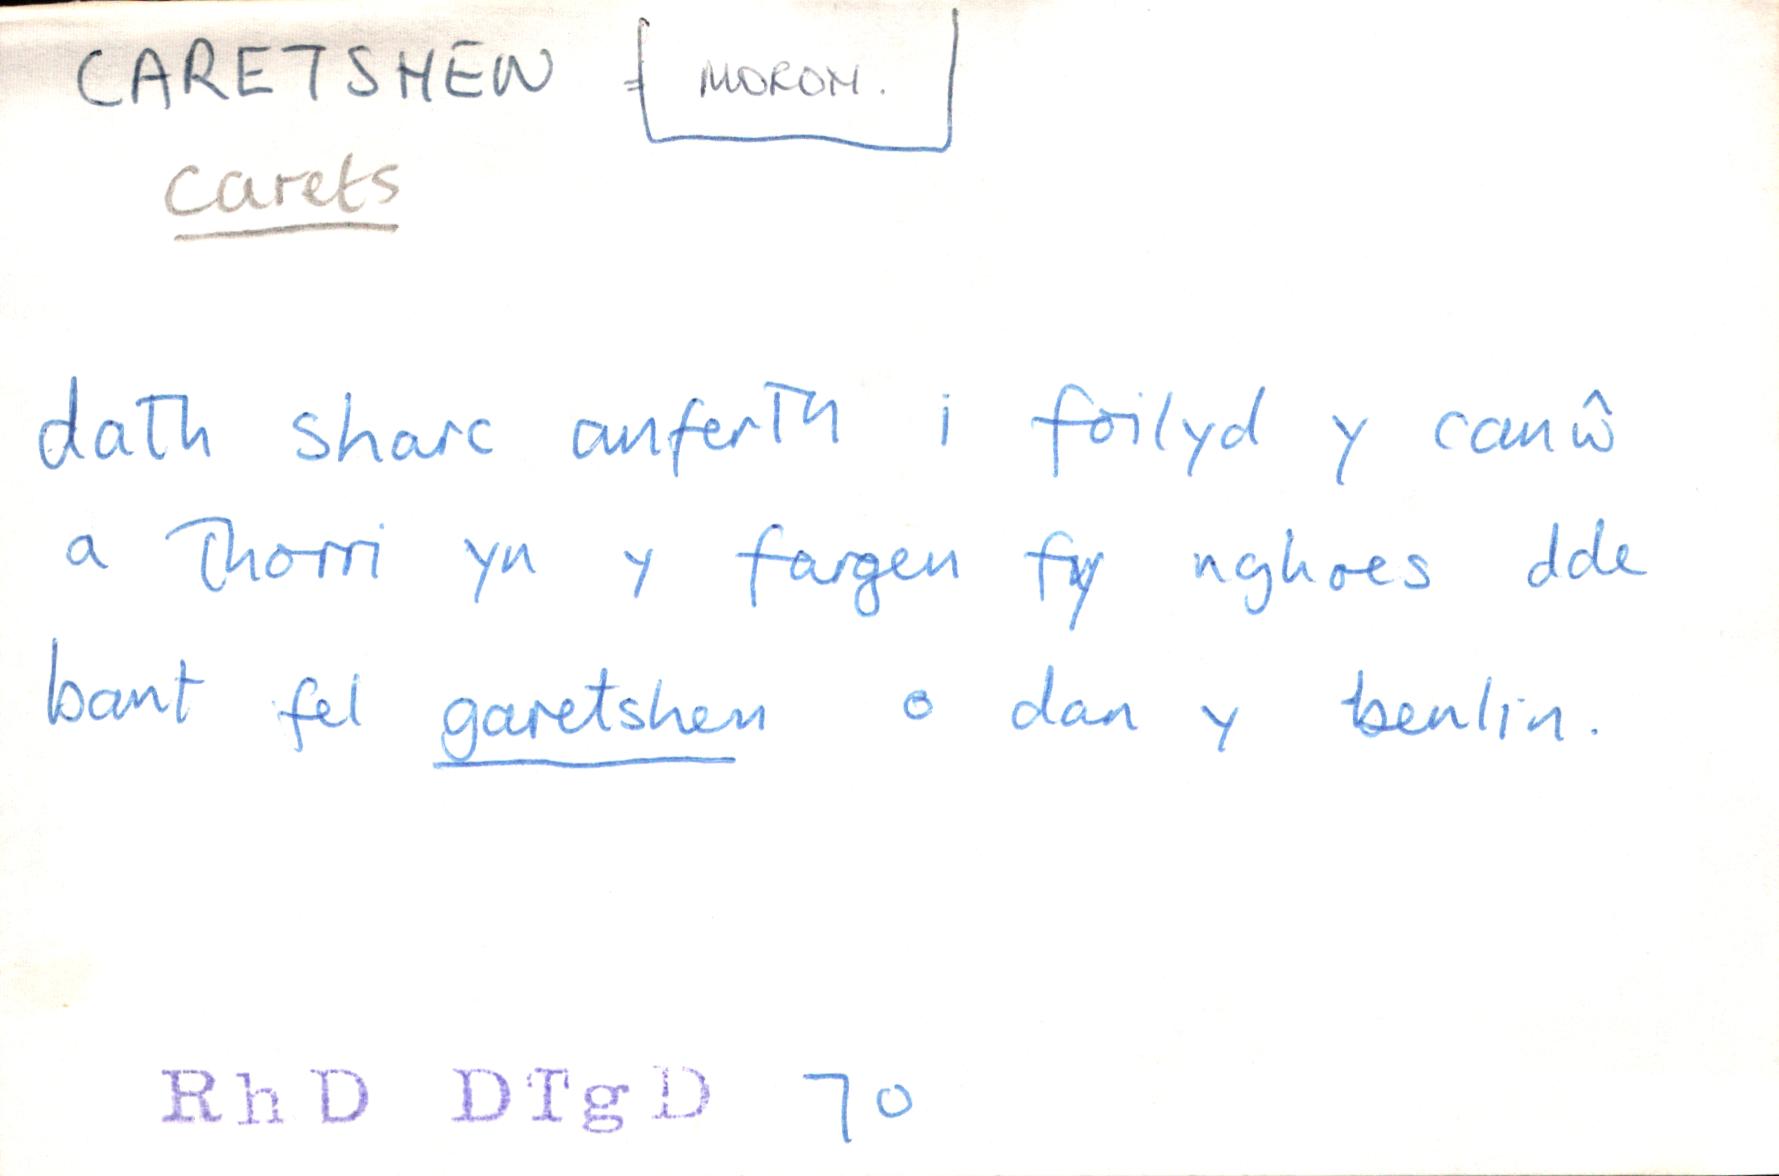 CARETSHEN = MORON.
carets
dath sharc anferth i foilyd y canŵ
a thorri yn y fargen fy nghoes dde
bant fel garetshen o dan y benlin.
RhD DTgD 70